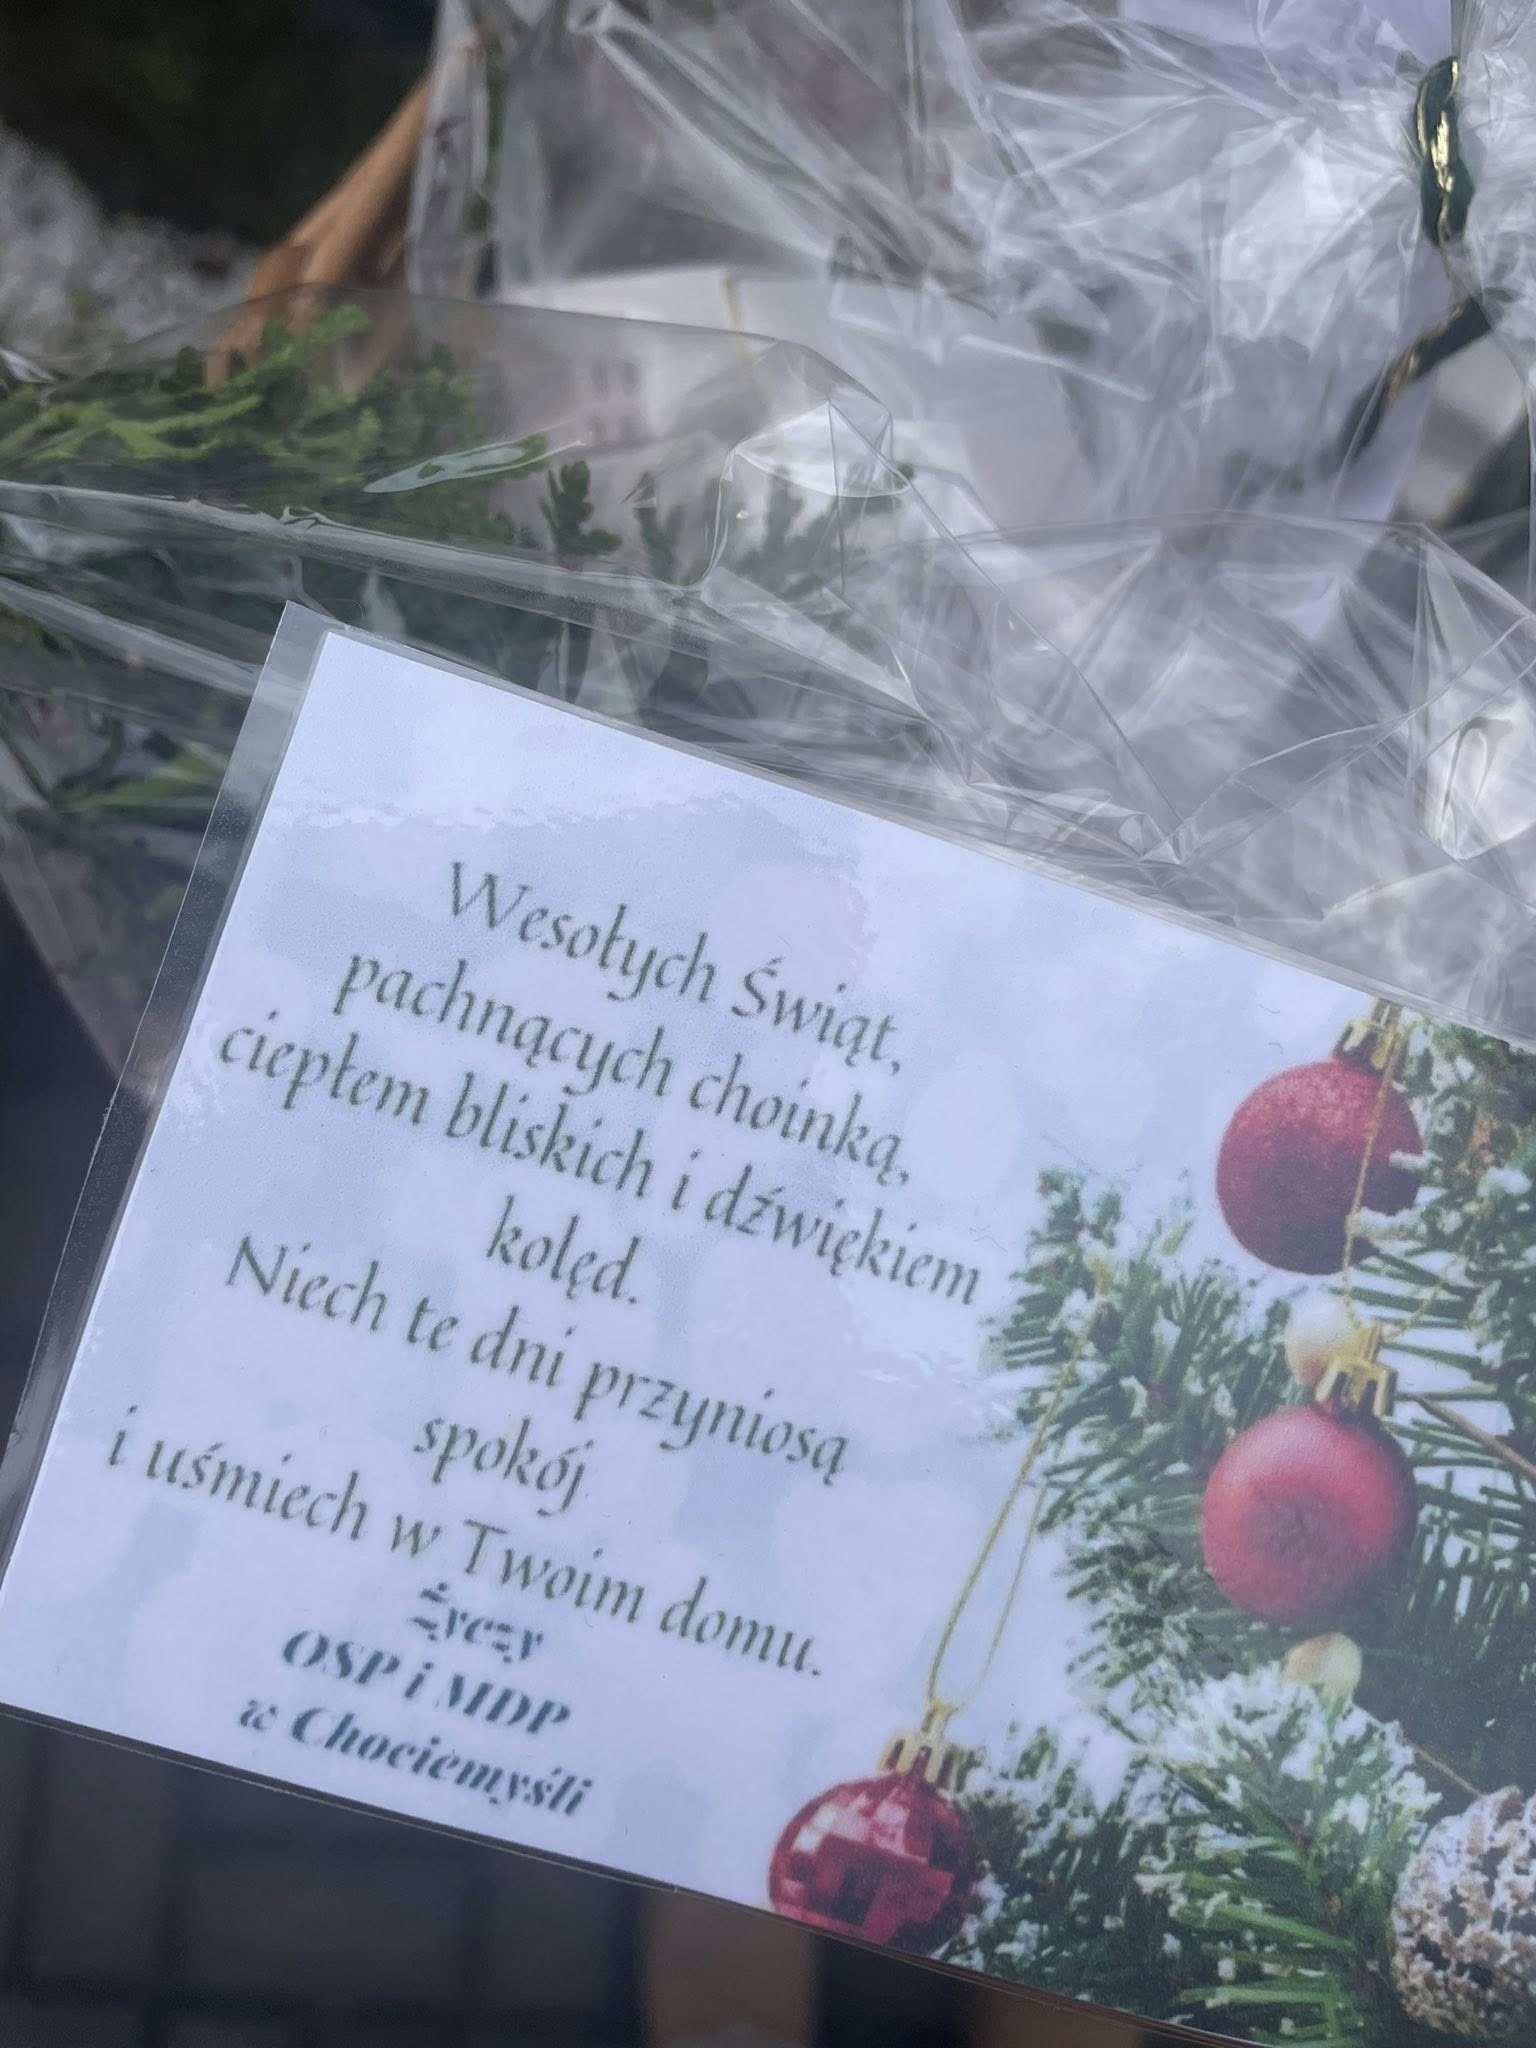 Wesołych Świąt,
pachnących choinką,
ciepłem bliskich i dźwiękiem
kolęd.
Niech te dni przyniosą
spokój
i uśmiech w Twoim domu.
życzy
OSP i MDP
w Chociemyśli